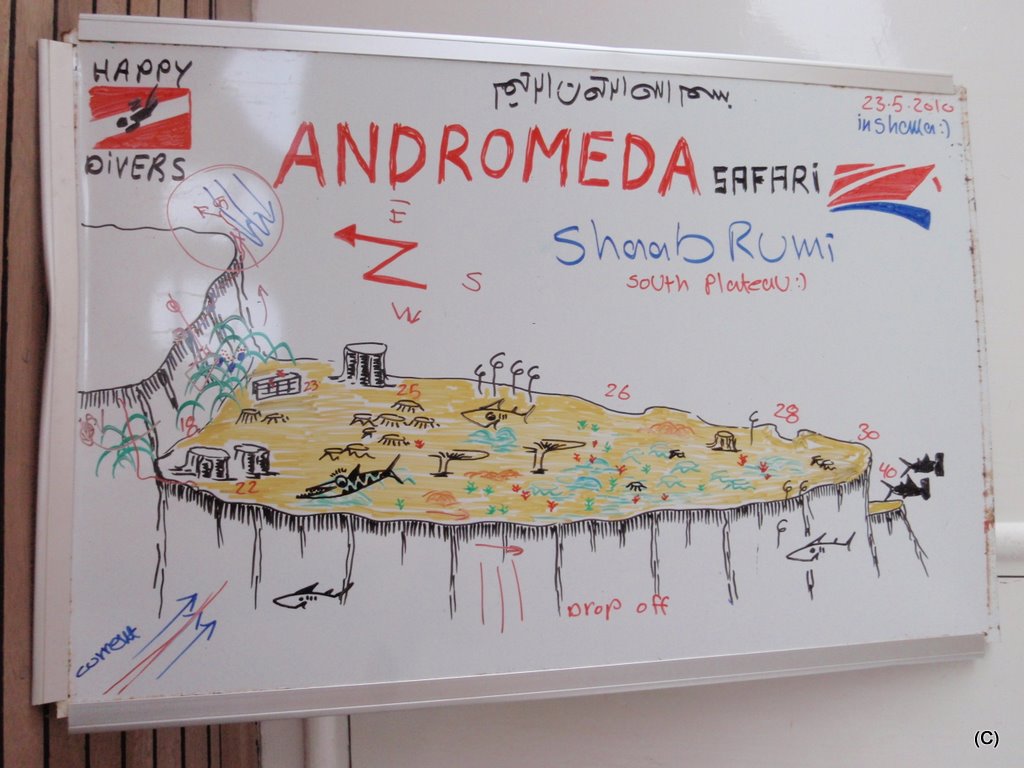 HAPPY
DiVERS
بسم الله الرحمن الرحيم
23.5.2010
inshalla:)
ANDROMEDA SAFARI
Shaab Rumi
south Plateau:)
N
S
W
23
25
26
28
30
40
18
22
current
Drop off
(C)